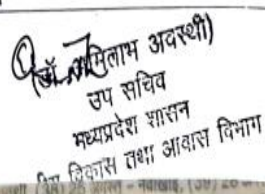 (डॉ. अमिताभ अवस्थी)
उप सचिव
मध्यप्रदेश शासन
विकास तथा आवास विभाग